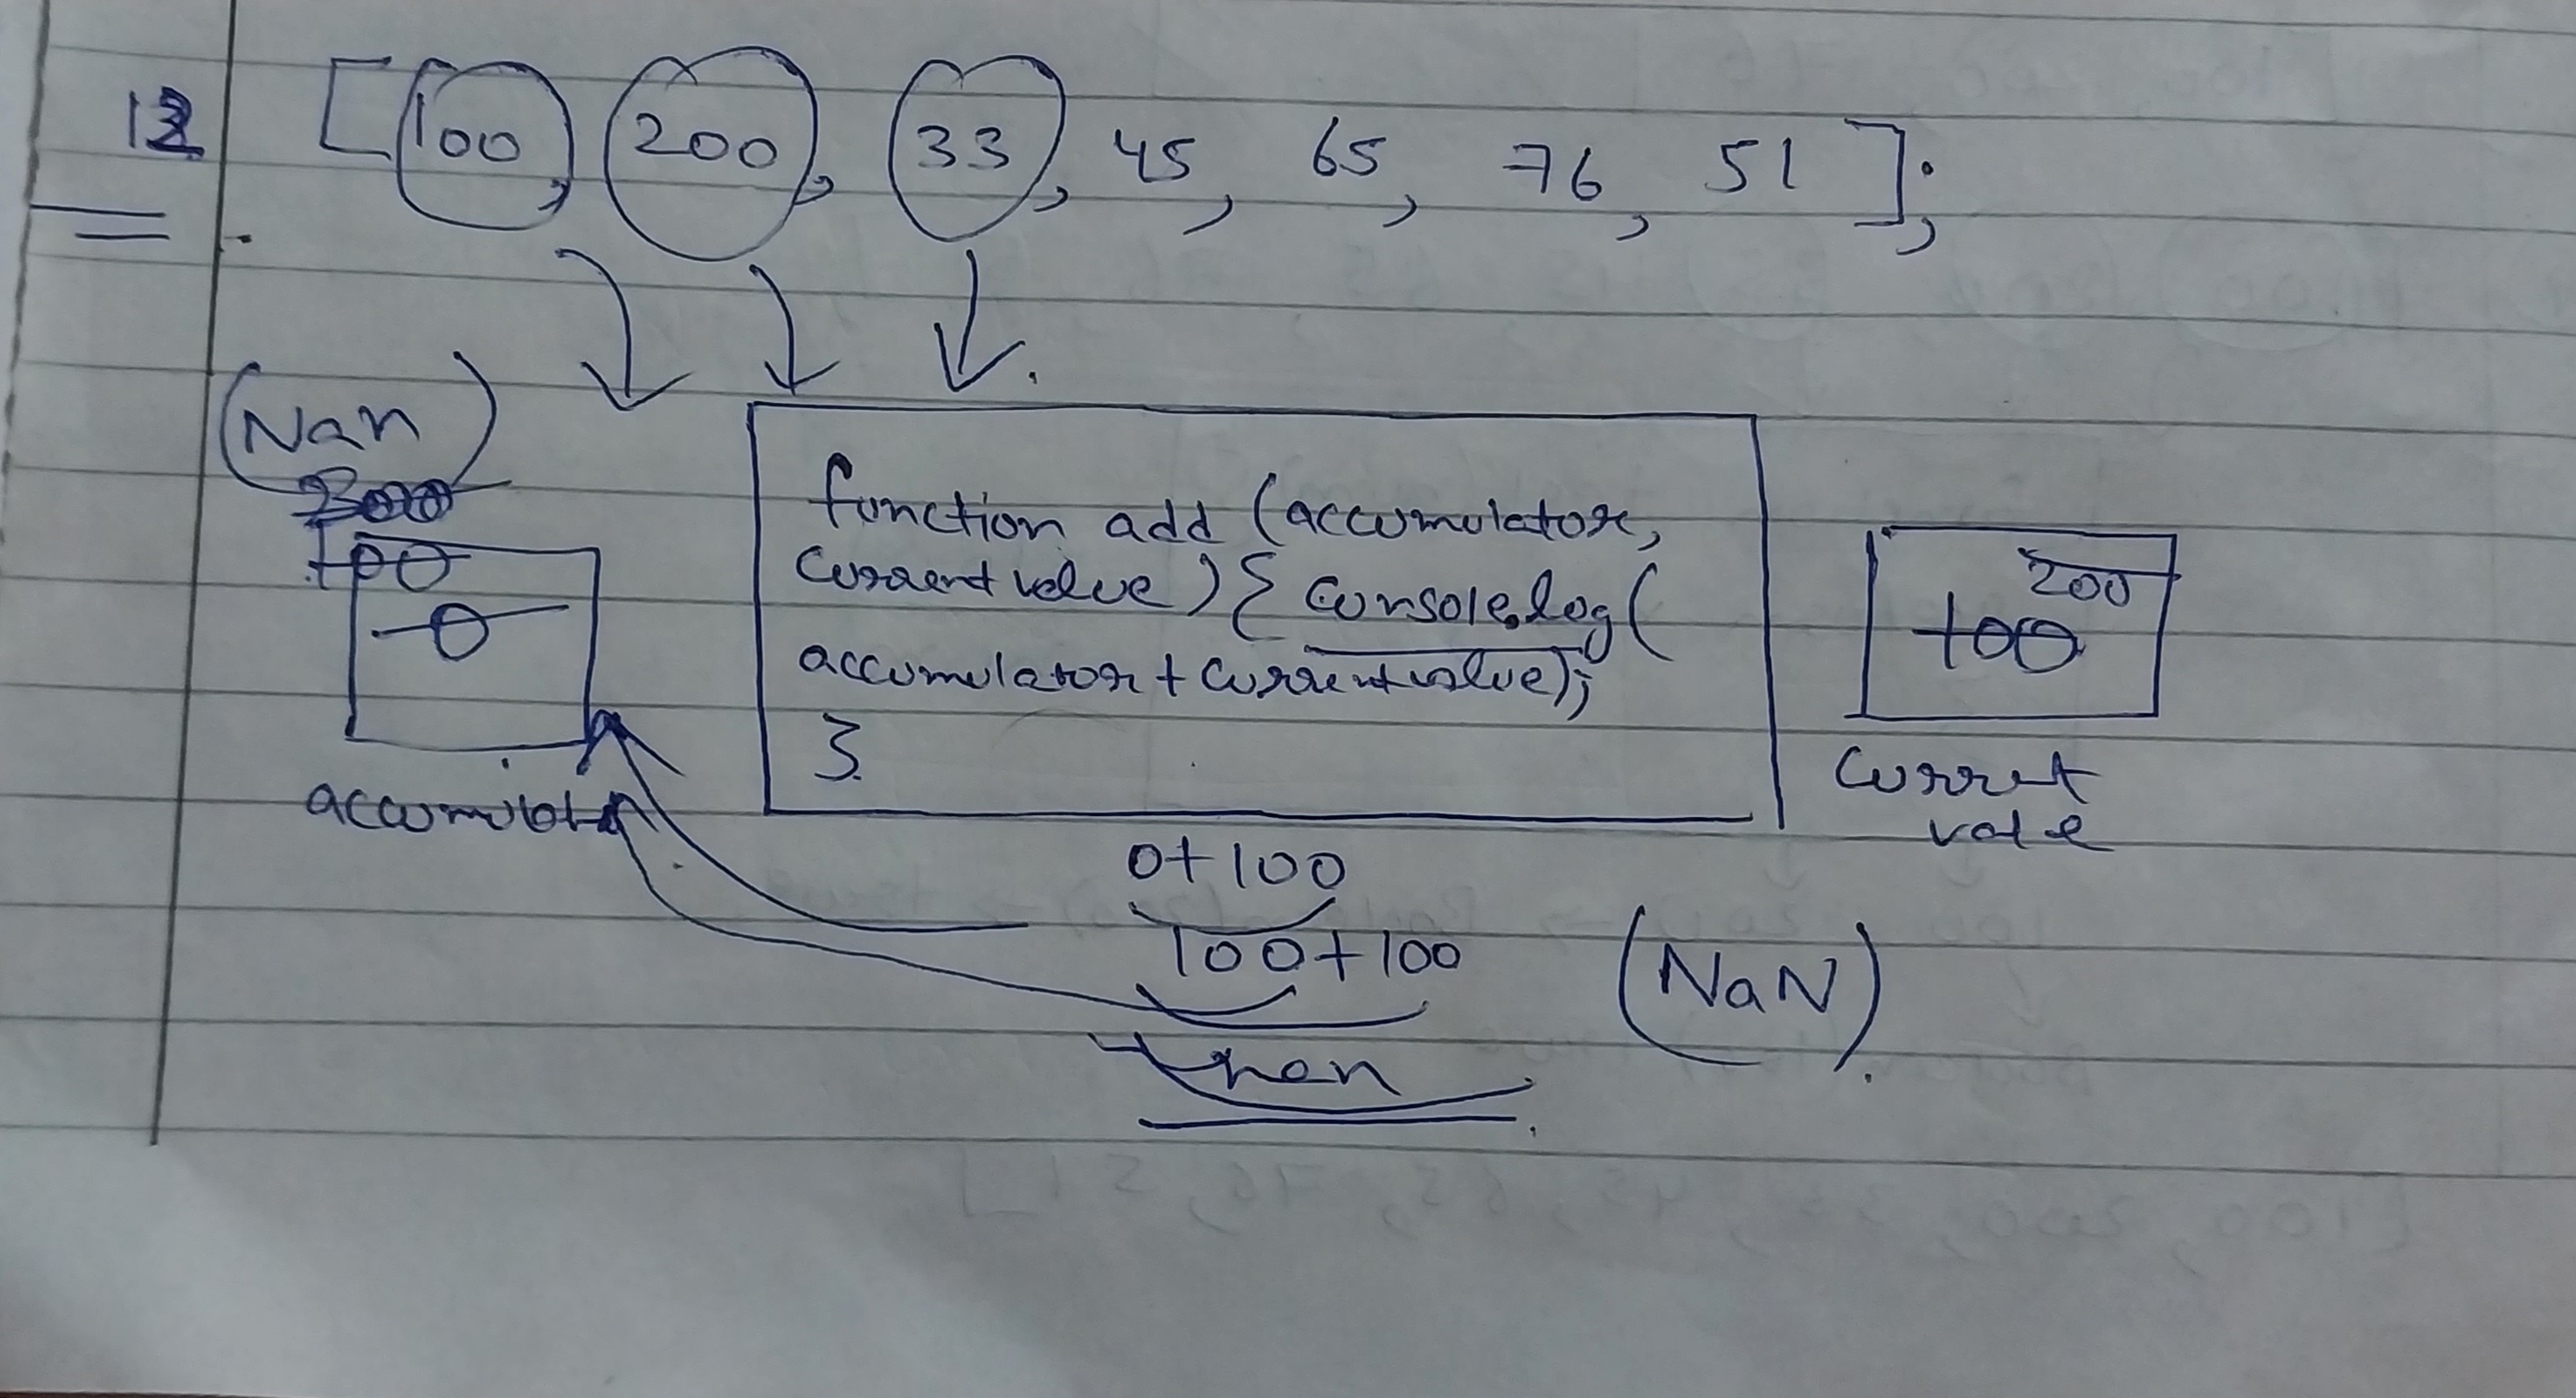 12
[100, 200, 33, 45, 65, 76, 51];
(Nan)
300
100
0
accumulator
function add (accumulator,
Current value) { console.log(
accumulator + Currentvalue);
}
200
100
Curret
vale
0+100
100+100
nan
(NaN).